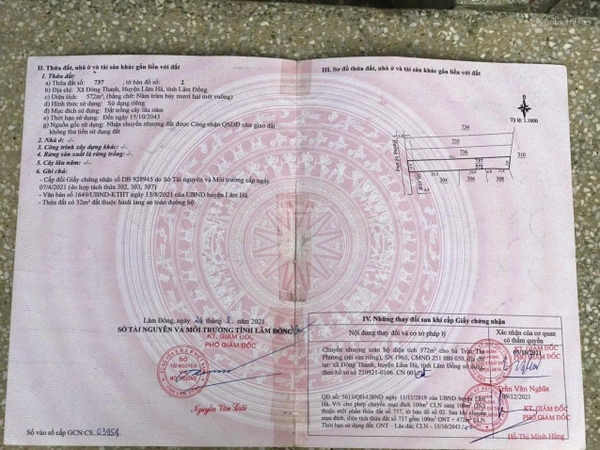 II. Thửa đất, nhà ở và tài sản khác gắn liền với đất
1. Thửa đất:
a) Thửa đất số: 737, tờ bản đồ số: 2
b) Địa chỉ: Xã Đông Thanh, Huyện Lâm Hà, tỉnh Lâm Đồng
c) Diện tích: 572m², (bằng chữ: Năm trăm bảy mươi hai mét vuông)
d) Hình thức sử dụng: Sử dụng riêng
đ) Mục đích sử dụng: Đất trồng cây lâu năm
e) Thời hạn sử dụng: Đến ngày 15/10/2043
g) Nguồn gốc sử dụng: Nhận chuyển nhượng đất được Công nhận QSDĐ như giao đất
không thu tiền sử dụng đất
2. Nhà ở: -/-
3. Công trình xây dựng khác: -/-
4. Rừng sản xuất là rừng trồng: -/-
5. Cây lâu năm: -/-
6. Ghi chú:
- Cấp đổi Giấy chứng nhận số DB 928945 do Sở Tài nguyên và Môi trường cấp ngày
07/4/2021 (do hợp tách thửa 302, 303, 307)
- Văn bản số 1649/UBND-KTHT ngày 13/8/2021 của UBND huyện Lâm Hà
- Thửa đất có 32m² đất thuộc hành lang an toàn đường bộ
Lâm Đồng, ngày tháng 2021
SỞ TÀI NGUYÊN VÀ MÔI TRƯỜNG TỈNH LÂM ĐỒNG
KT. GIÁM ĐỐC
PHÓ GIÁM ĐỐC
SỞ
TÀI NGUYÊN
Số vào sổ cấp GCN:CS
III. Sơ đồ thửa đất, nhà ở và tài sản khác gắn liền với đất
Tỷ lệ 1:1000
734
735
736
310
304
306
308
IV. Những thay đổi sau khi cấp Giấy chứng nhận
Nội dung thay đổi và cơ sở pháp lý
Xác nhận của cơ quan
có thẩm quyền
Chuyển nhượng toàn bộ diện tích 572m² cho bà Trần Thị
Phương (tài sản riêng), SN 1965, CMND 251 080 050, địa chỉ:
xã Đông Thanh, huyện Lâm Hà, tỉnh Lâm Đồng
hồ sơ 210921-0165. CN 001
05/10/2021
GIÁM ĐỐC
Trần Văn Nghĩa
QĐ số: 5613/QĐ-UBND ngày 11/11/2019 của UBND huyện Lâm
Hà, V/v cho phép chuyển mục đích 100m² CLN sang
một phần thửa đất số 737, tờ bản đồ số 02. Sau khi chuyển
mục đích, diện tích thửa đất số 737 gồm 100m² ONT
Thời hạn sử dụng đất: ONT - Lâu dài, CLN - 15/10/2043
09/12/2021
KT. GIÁM ĐỐC
PHÓ GIÁM ĐỐC
Hồ Thị Minh Hằng